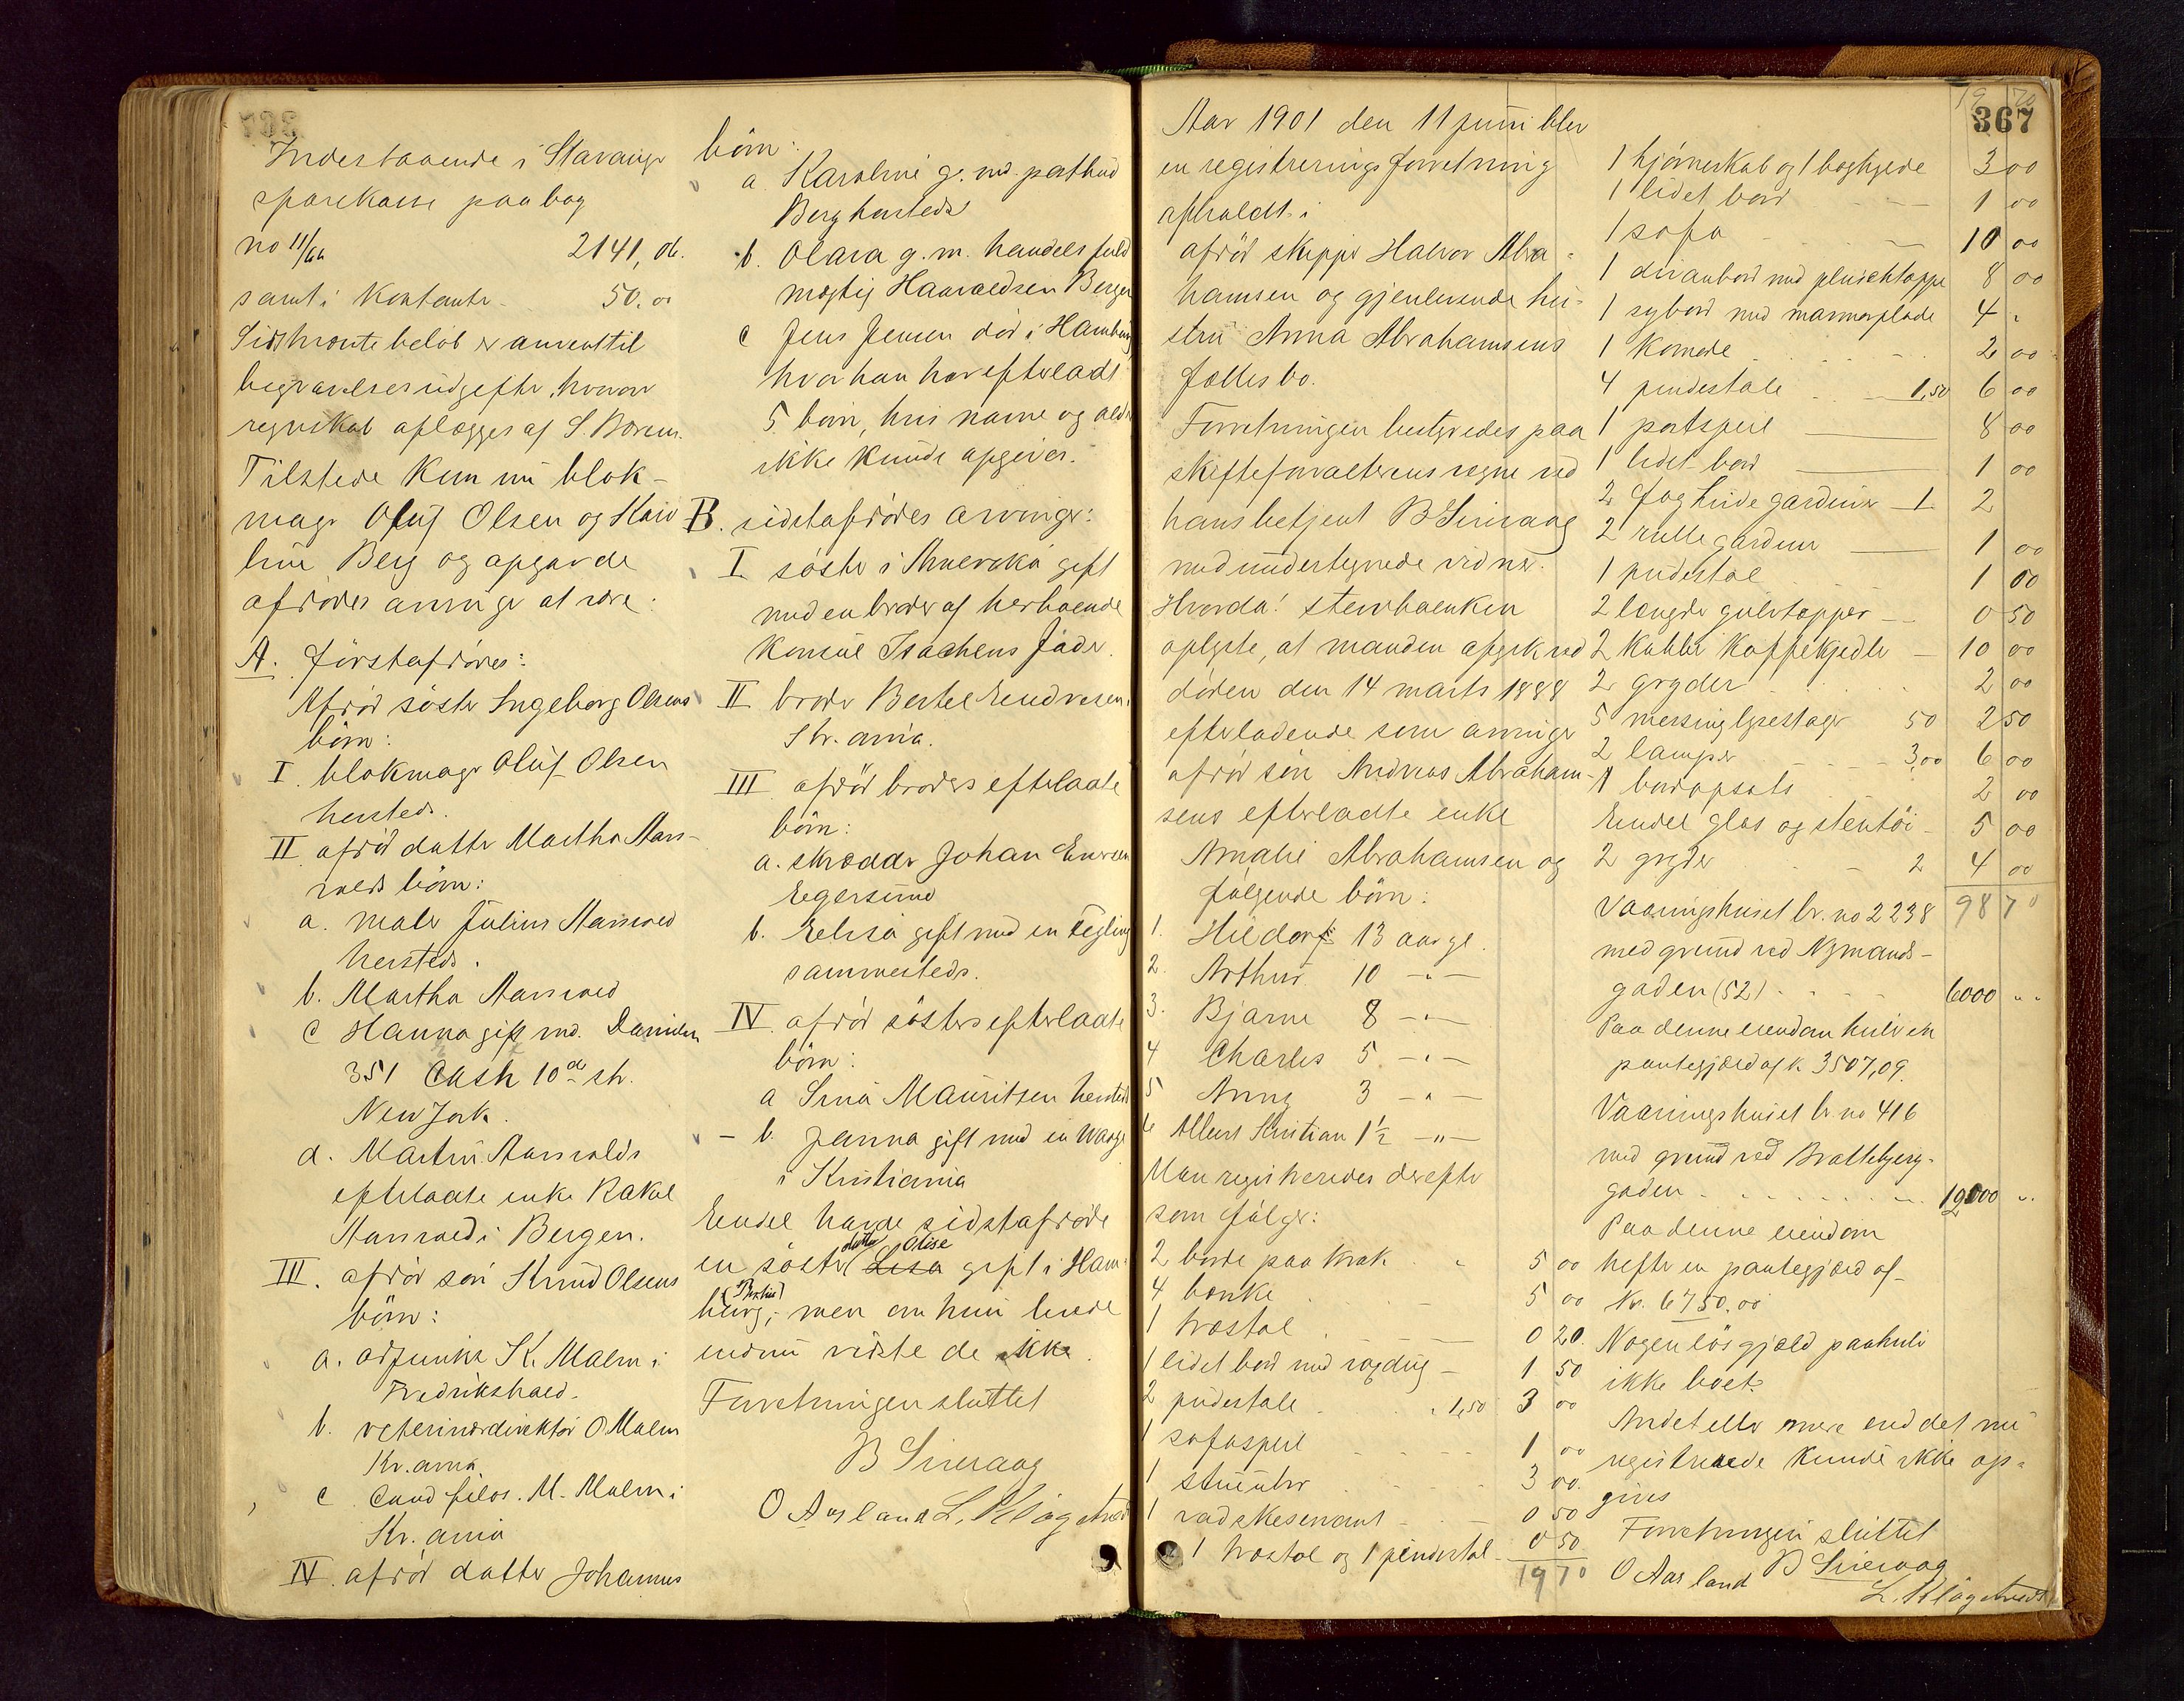 Indestaaende i Stavanger
sparekasse paa bog
no 11/66 2141,06.
samt i Kontanter 50.00
Sidstnevnte beløb er anvent til
begravelsesudgifter, hvorover
regnskab aflægges af S. Børsen.
Tilstede kun nu blok-
mager Oluf Olsen og Karo
line Berg og opgavde
afdødes arvinger at være:
A. førstafdødes:
Afdød søster Ingeborg Olsens
børn:
I. blokmager Oluf Olsen
hersteds.
II afdød datter Martha Aars-
volds børn:
a. maler Julius Aarsvold
hersteds.
b. Martha Aarsvold
c Hanna gift md. Danielsen
351 Cash 10de str.
New Jork.
d. Martin Aarsvolds
efterladte enke Rakel
Aarsvold i Bergen.
III. afdød søn Knud Olsens
børn:
a. adjunkt K. Malm i
Fredrikshald.
b. veterinærdirektør O Malm
Kr.ania
c Cand filos. M. Malm i
Kr.ania
IV. afdød datter Johannes
børn:
a. Karoline g. md. postbud
Berg hersteds
b. Olava g. m. handelsfuld
mægtig Haavaldsen Bergen
c Jens Jensen død i Hamburg
hvor han har efterladt
5 børn, hvis navne og alder
ikke kunde opgives.
B. sidstafdødes arvinger:
I søster i Amerika gift
med en broder af herboende
Konsul Isachsens fader.
II broder Bertel Endresen
Kr.ania.
III afdød broders efterladte
børn:
a. skrædder Johan Endresen
Egersund
b. Elisa gift med en Tegling
sammesteds.
IV. afdød søsters efterladte
børn:
a Sina Mauritsen hersteds
- b. Janna gift med en Waage
i Kristiania
Endel havde sidstafdøde
en søster datter Lisa Olise gift i Ham-
burg, (Bertha) men om hun levde
endnu vidste de ikke.
Forretningen sluttet
B Sirevaag
O Aarsland L. Kløgetvedt
367
19 70
Aar 1901 den 11 juni blev
en registreringsforretning
afholdt i
afdød skipper Halvor Abra-
hamsen og gjenlevende hu-
stru Anna Abrahamsens
fællesbo.
Forretningen bestyredes paa
skifteforvalterens vegne ved
hans betjent B Sirevaag
med undertegnede vidner.
Hvorda! stervboenken
oplyste, at manden afgik ved
døden den 14 marts 1888
efterladende som arvinger
afdød søn Andreas Abraham-
sens efterladte enke
Amalie Abrahamsen og
følgende børn:
1. Hildorf 13 aar gl.
2. Arthur 10 -"-
3. Bjarne 8 -"-
4 Charles 5 -"-
5 Anny 3 -"-
6 Albert Kristian 1½ -"-
Man registreredes derefter
som følger:
2 borde paa krak 5 00
4 bænke 5 00
1 træstol 0 20.
1 lidet bord med voxdug 1 50
2 pindestole 1,50 3 00
1 sofaspeil 1 00
1 stueuhr 3 00.
1 vadskeservant 0 50
1 træstol og 1 pindestol 0 50
19 70
1 hjørneskab og 1 boghylde 3 00
1 lidet bord 1 00
1 sofa 10 00
1 divanbord med pluschtæppe 8 00
1 sybord med marmorplade 4 "
1 Komode 2 00
4 pindestole 1,50 6 00
1 portspeil 8 00
1 lidet bord 1 00
2 fag hvide gardiner 1 2
2 rullegardiner 1 00
1 pindestol 1 00
2 længder gulvtæpper 0 50
2 kobber kaffekjedler 10 00
2 gryder 2 00
5 messinglysestager 50 2 50
2 lamper 3,00 6 00
1 bordopsats 2 00
Endel glas og stentøi 5 00
2 gryder 2 4 00
98 70
Vaaningshuset br. no 2238
med grund ved Nymands-
gaden (52) 6000 "
Paa denne eiendom hviler en
pantegjæld af k. 3507,09.
Vaaningshuset br. no 416
med grund ved Brattebjerg-
gaden 12000 "
Paa denne eiendom
hefter en pantegjæld af
Kr. 6750,00
Nogen løs gjæld paahviler
ikke boet.
Andet eller mere end det nu
registrerede kunde ikke op-
gives
Forretningen sluttet
B Sirevaag
O Aarsland
L. Kløgetvedt